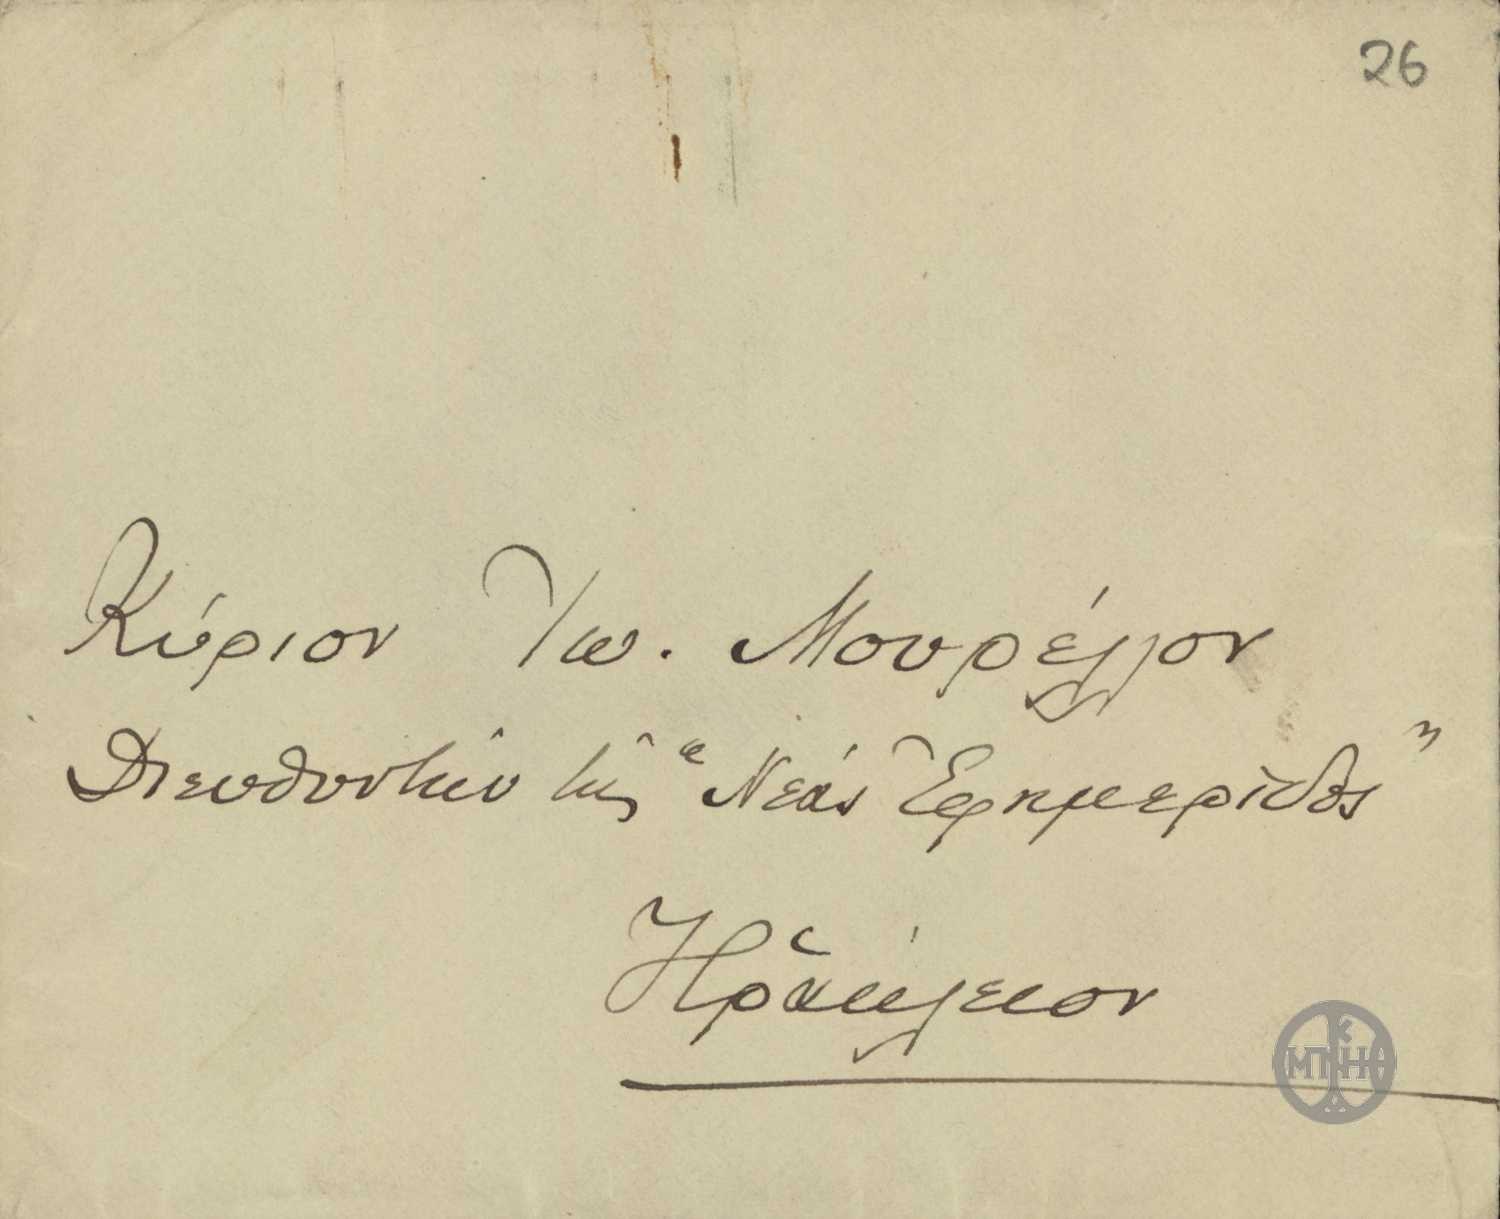 26
Κύριον Ἰω. Μουρέλλον
Διευθυντὴν τῆς "Νέας Ἐφημερίδος"
Ἡράκλειον
ΜΠΚΗΑ